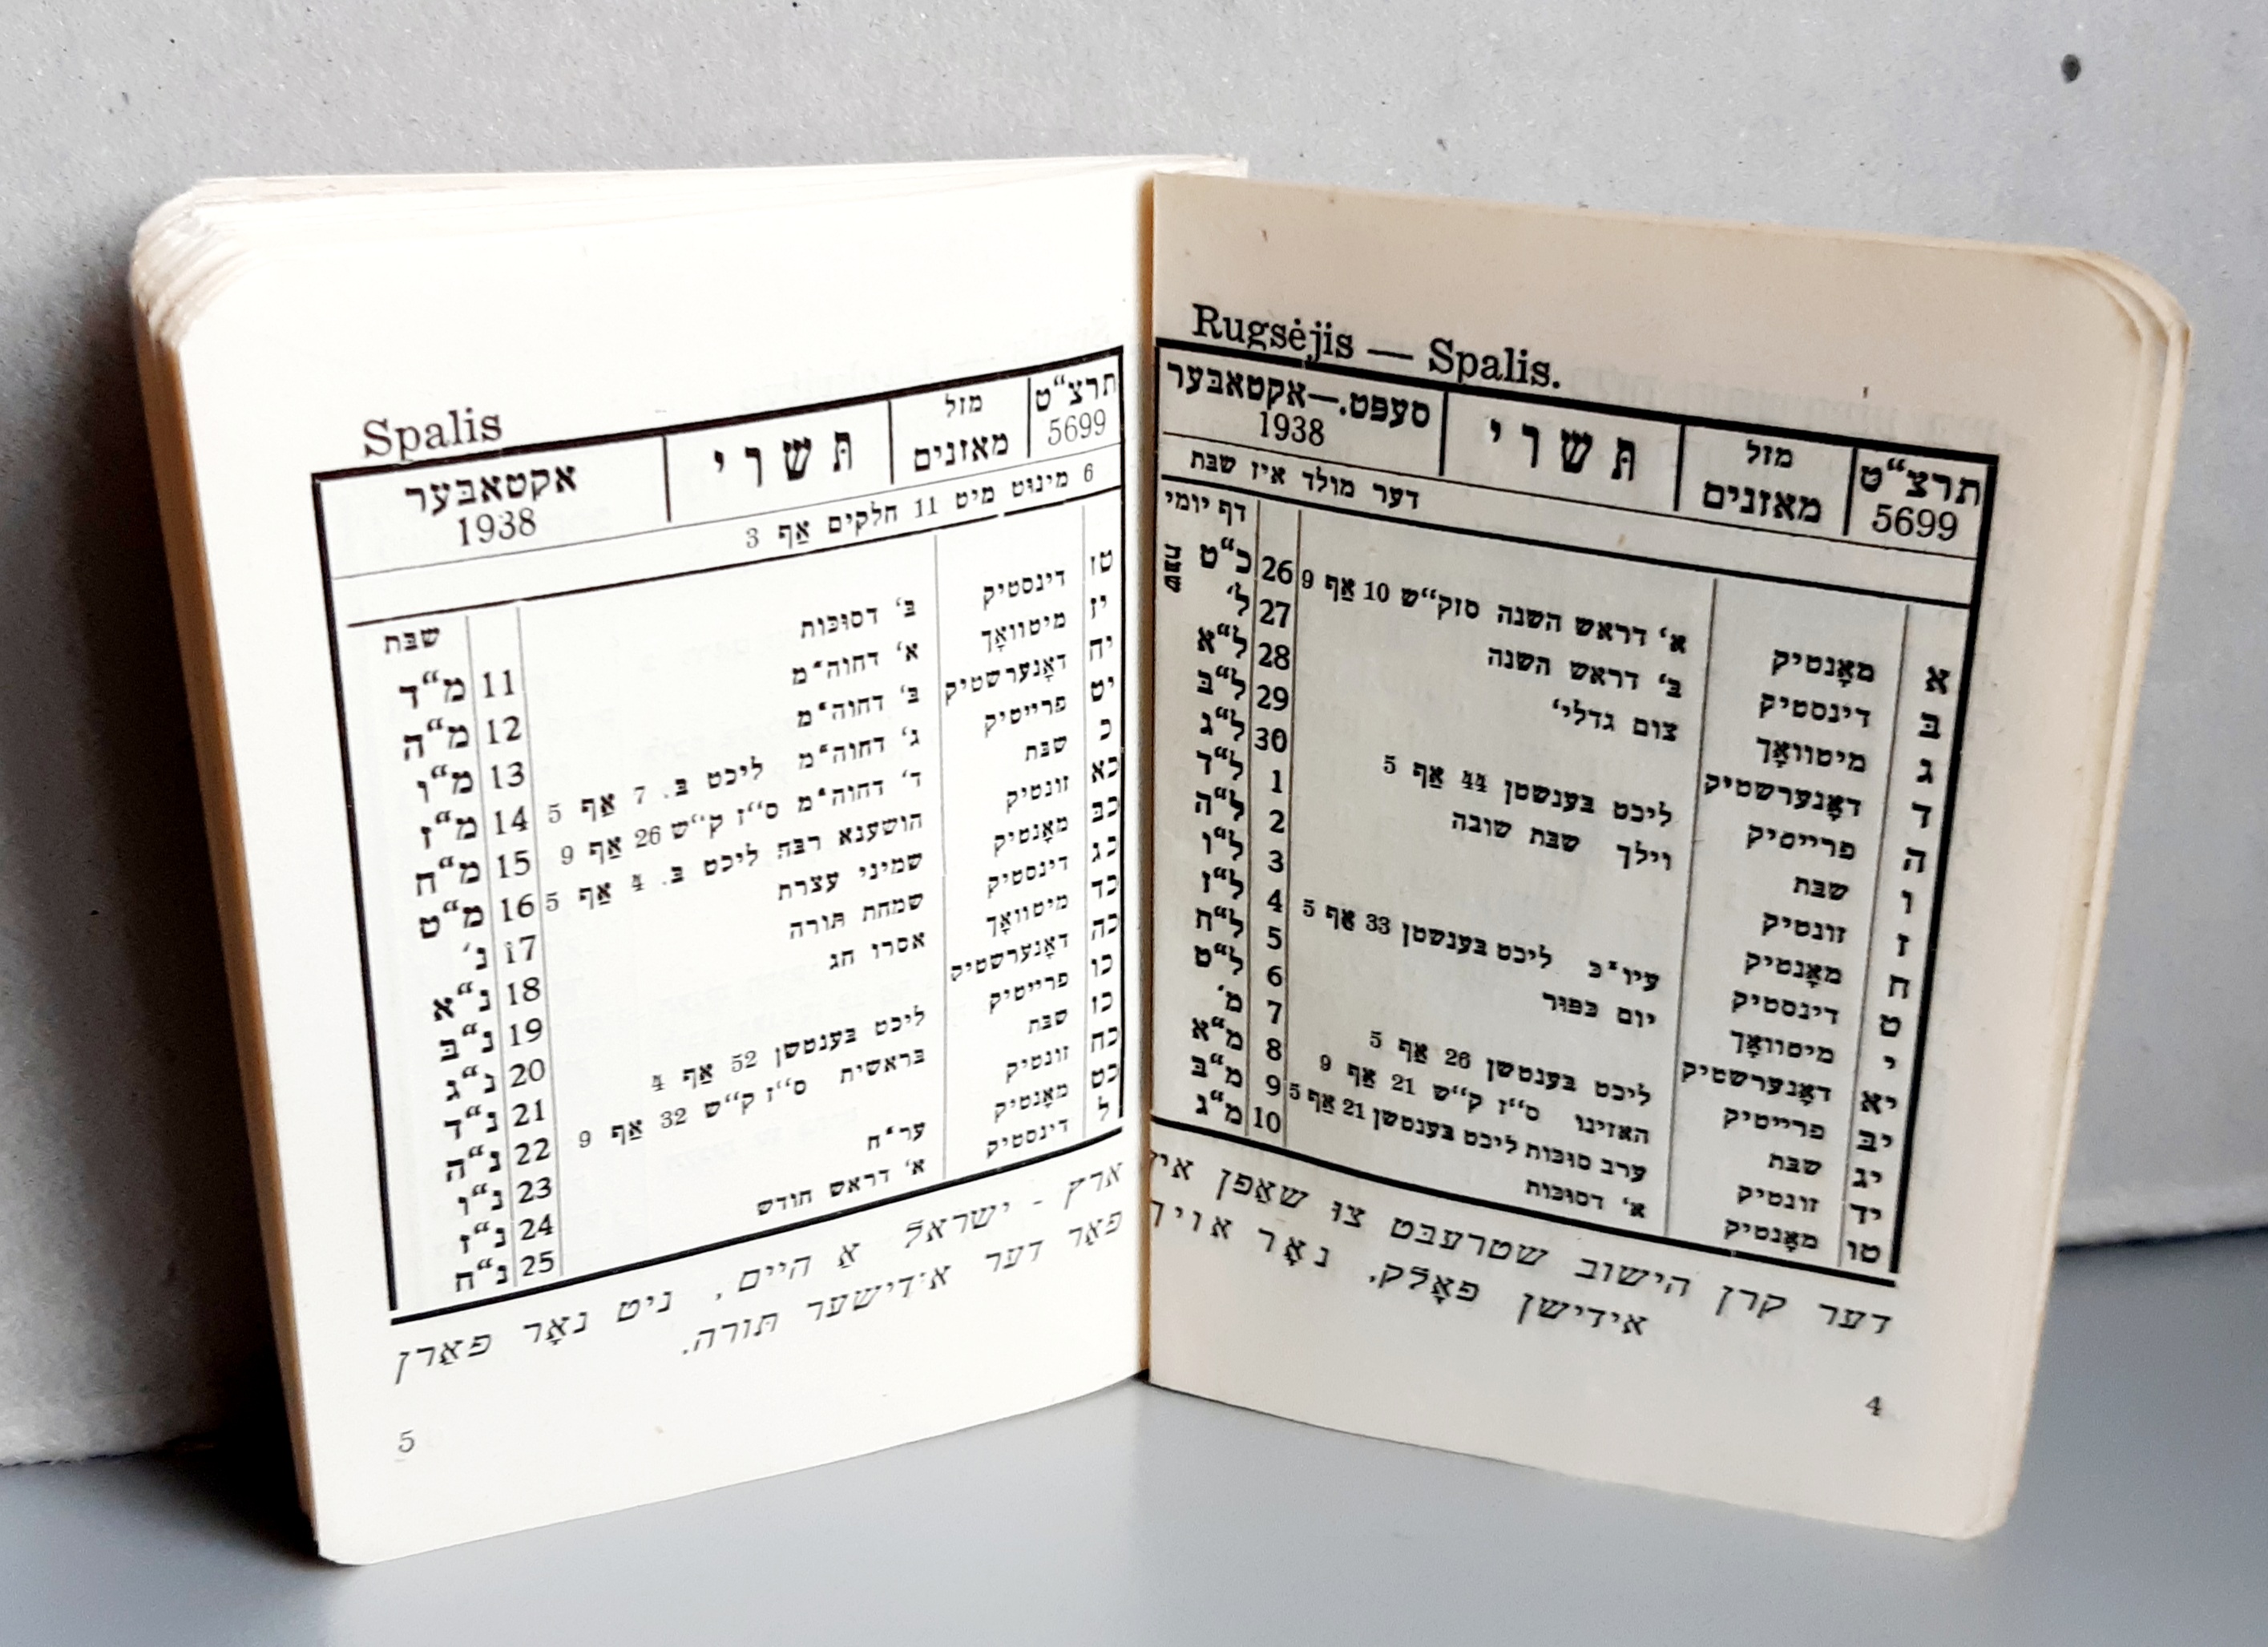 Rugsėjis — Spalis.
תרצ“ט מזל תּשרי סעפּט.—אקטאָבער
5699 מאזנים 1938
דער מולד איז שבּת
דף יומי
א מאָנטיק א‘ דראש השנה סוק“ש 10 אַף 9 26 כ“ט שבּת
ב דינסטיק ב‘ דראש השנה 27 ל‘
ג מיטוואָך צום גדלי‘ 28 ל“א
ד דאָנערשטיק 29 ל“ב
ה פרייטיק ליכט בּענשטן 44 אַף 5 30 ל“ג
ו שבּת וילך שבּת שובה 1 ל“ד
ז זונטיק 2 ל“ה
ח מאָנטיק 3 ל“ו
ט דינסטיק עיו"כּ ליכט בּענשטן 33 אַף 5 4 ל“ז
י מיטוואָך יום כּפּור 5 ל“ח
יא דאָנערשטיק 6 ל“ט
יב פרייטיק ליכט בּענטשן 26 אַף 5 7 מ‘
יג שבּת האזינו ס“ז ק“ש 21 אַף 9 8 מ“א
יד זונטיק ערב סוכּות ליכט בּענטשן 21 אַף 5 9 מ“ב
טו מאָנטיק א‘ דסוכּות 10 מ“ג
דער קרן הישוב שטרעבּט צו שאַפן אין
אידישן פאָלק, נאָר אויך
4
Spalis
תרצ“ט מזל תּשרי אקטאָבּער
5699 מאזנים 1938
6 מינוט מיט 11 חלקים אַף 3
שבּת
טז דינסטיק ב‘ דסוכּות 11 מ“ד
יז מיטוואָך א‘ דחוה"מ 12 מ“ה
יח דאָנערשטיק ב‘ דחוה"מ 13 מ“ו
יט פרייטיק ג‘ דחוה"מ ליכט בּ. 7 אַף 5 14 מ“ז
כ שבּת ד‘ דחוה"מ ס“ז ק“ש 26 אַף 9 15 מ“ח
כא זונטיק הושענא רבּה ליכט בּ. 4 אַף 5 16 מ“ט
כב מאָנטיק שמיני עצרת 17 נ‘
כג דינסטיק שמחת תּורה 18 נ“א
כד מיטוואָך אסרו חג 19 נ“ב
כה דאָנערשטיק 20 נ“ג
כו פרייטיק ליכט בּענטשן 52 אַף 4 21 נ“ד
כז שבּת בּראשית ס“ז ק“ש 32 אַף 9 22 נ“ה
כח זונטיק 23 נ“ו
כט מאָנטיק ער"ח 24 נ“ז
ל דינסטיק א‘ דראש חודש 25 נ“ח
ארץ - ישראל אַ היים, ניט נאָר פאַרן
פאַר דער אידישער תּורה.
5